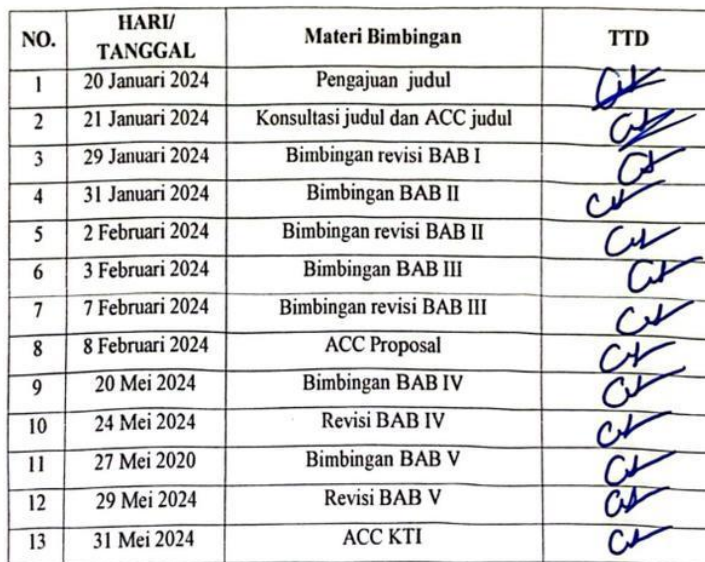 NO. HARI/ TANGGAL Materi Bimbingan TTD
1 20 Januari 2024 Pengajuan judul
2 21 Januari 2024 Konsultasi judul dan ACC judul
3 29 Januari 2024 Bimbingan revisi BAB I
4 31 Januari 2024 Bimbingan BAB II
5 2 Februari 2024 Bimbingan revisi BAB II
6 3 Februari 2024 Bimbingan BAB III
7 7 Februari 2024 Bimbingan revisi BAB III
8 8 Februari 2024 ACC Proposal
9 20 Mei 2024 Bimbingan BAB IV
10 24 Mei 2024 Revisi BAB IV
11 27 Mei 2020 Bimbingan BAB V
12 29 Mei 2024 Revisi BAB V
13 31 Mei 2024 ACC KTI